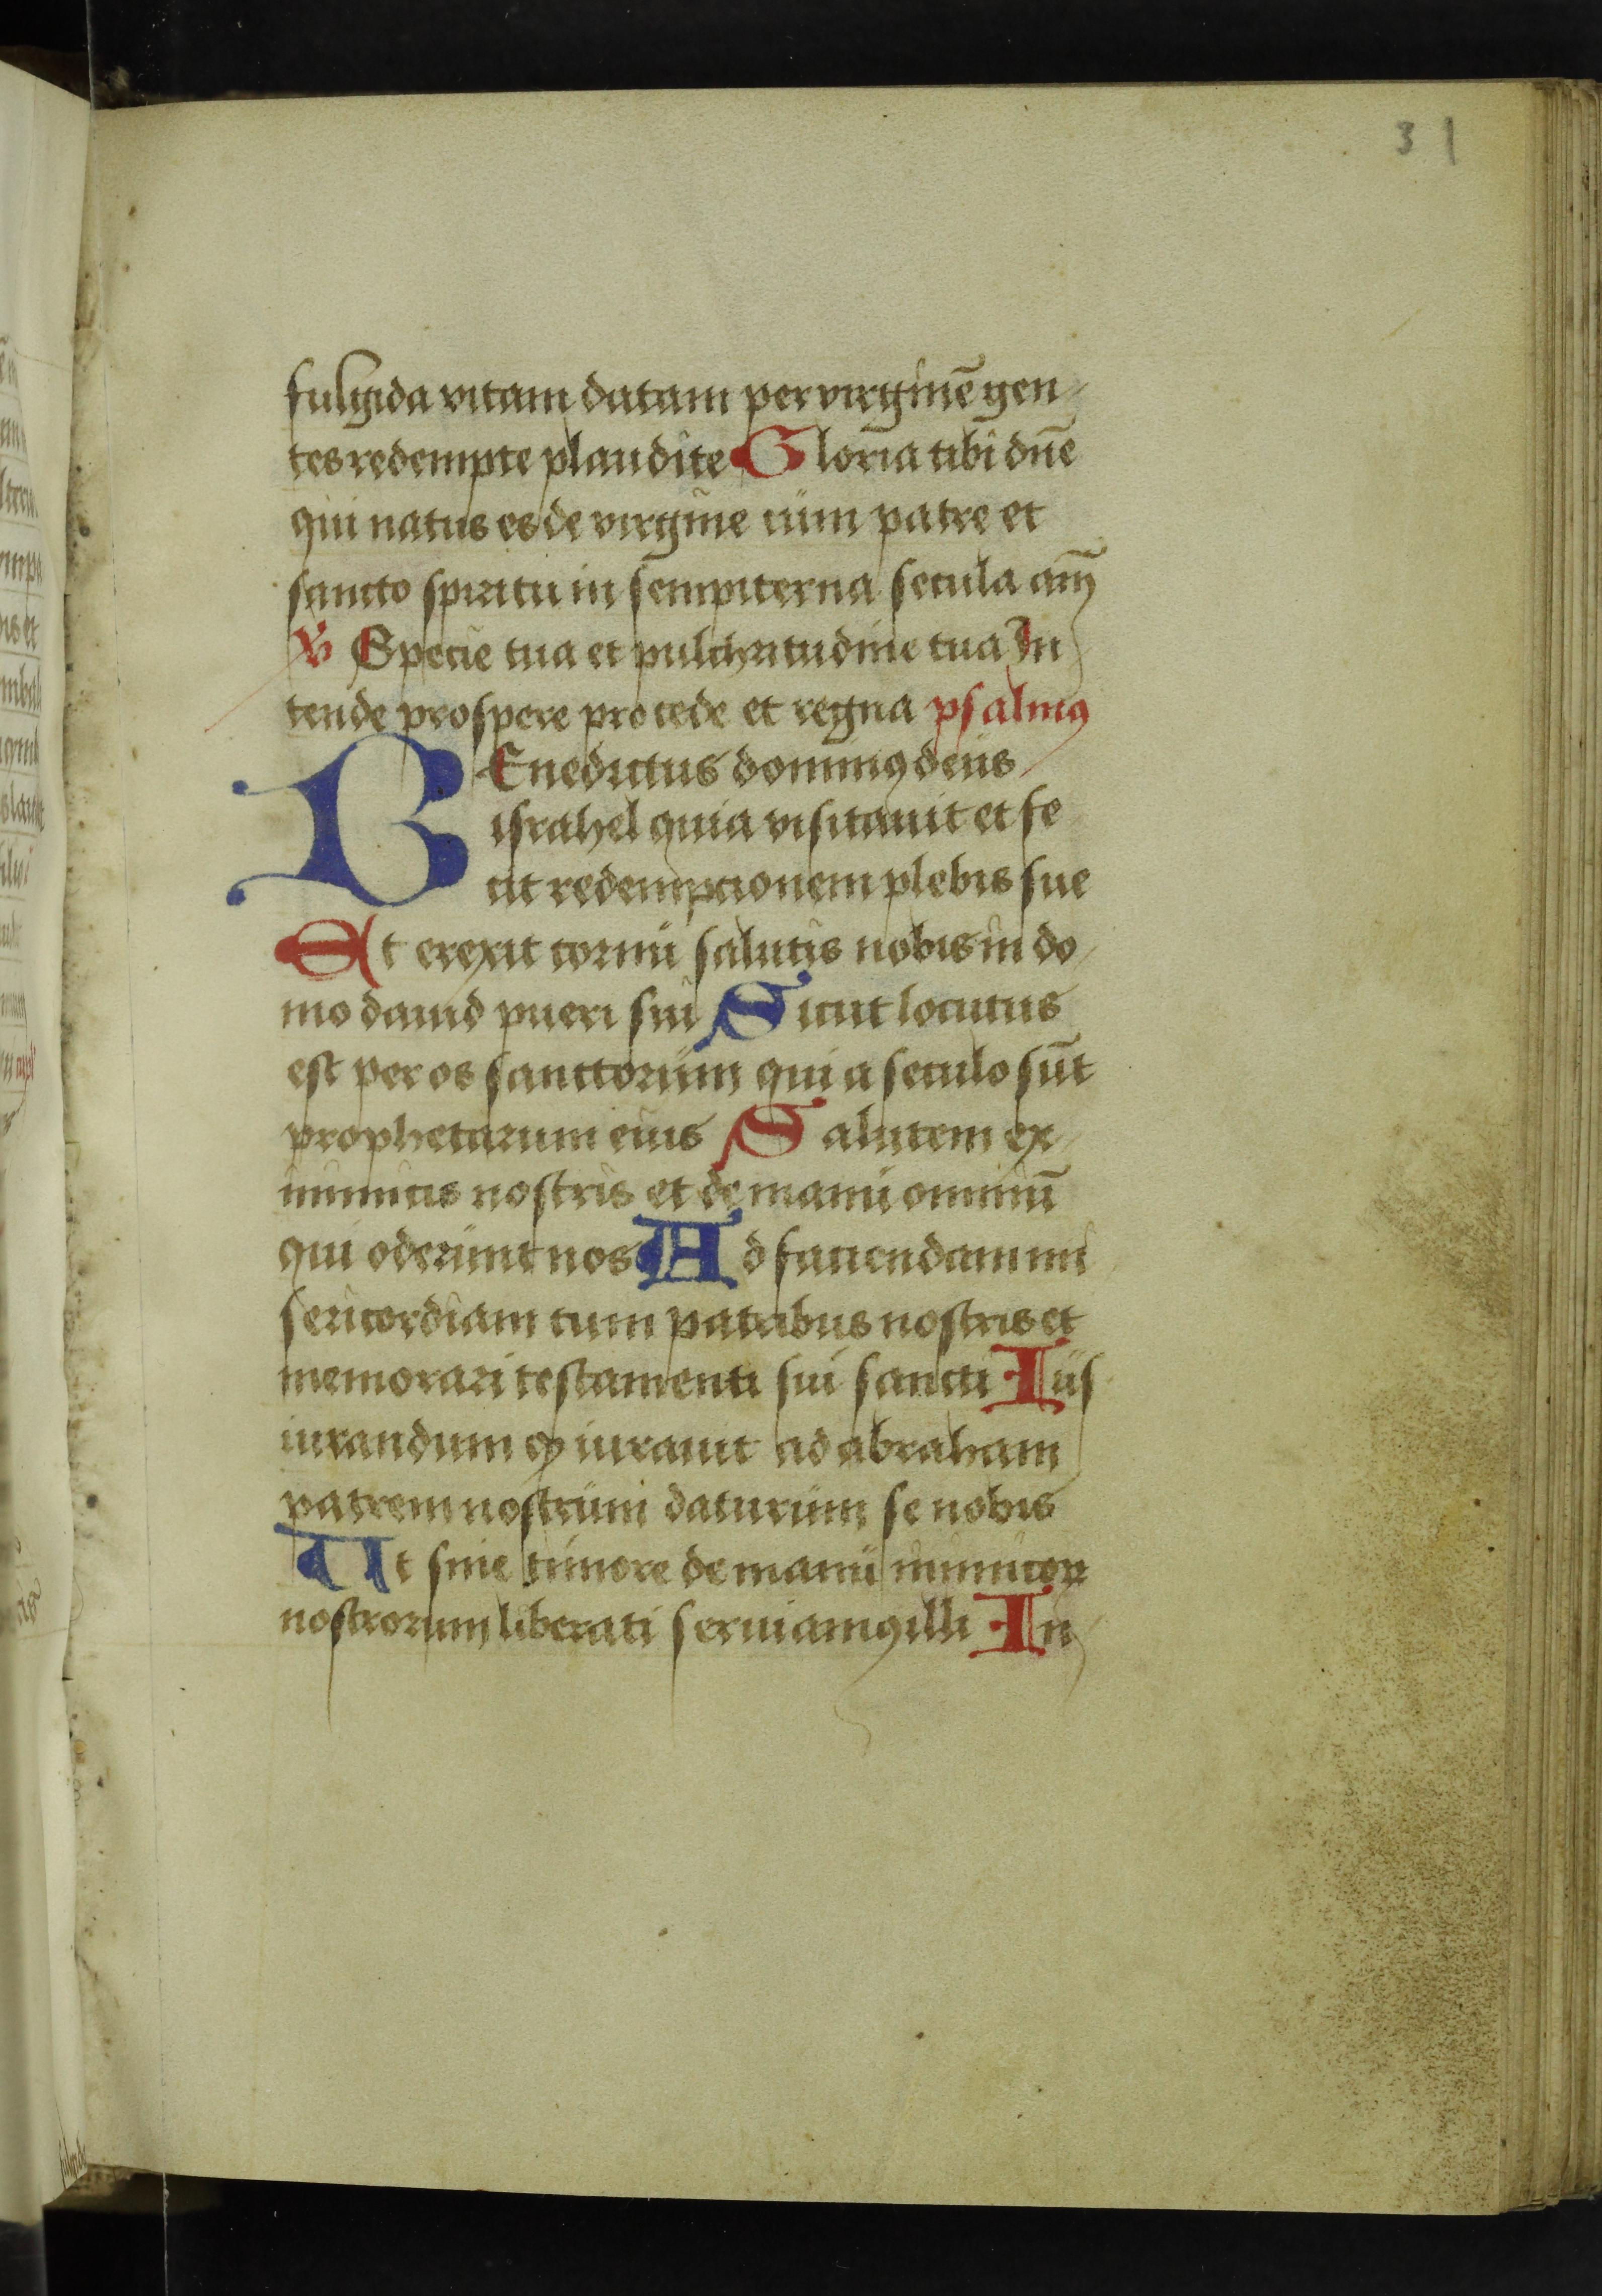 31
fulgida vitam datam per virginē gen
tes redempte plaudite Gloria tibi dn̄e
qui natus es de virgine cum patre et
sancto spiritu in sempiterna secula am̄
℣ Specie tua et pulchritudine tua In
tende prospere procede et regna psalmꝰ
BEnedictus dominꝰ deus
israhel quia visitauit et fe
cit redemptionem plebis sue
Et erexit cornu salutis nobis in do
mo dauid pueri sui Sicut locutus
est per os sanctorum qui a seculo sūt
prophetarum eius Salutem ex
inimicis nostris et de manu omniū
qui oderunt nos Ad faciendam mi
sericordiam cum patribus nostris et
memorari testamenti sui sancti Ius
iurandum qͦ iurauit ad abraham
patrem nostrum daturum se nobis
Ut sine timore de manu inimicoꝝ
nostrorum liberati seruiamꝰ illi In